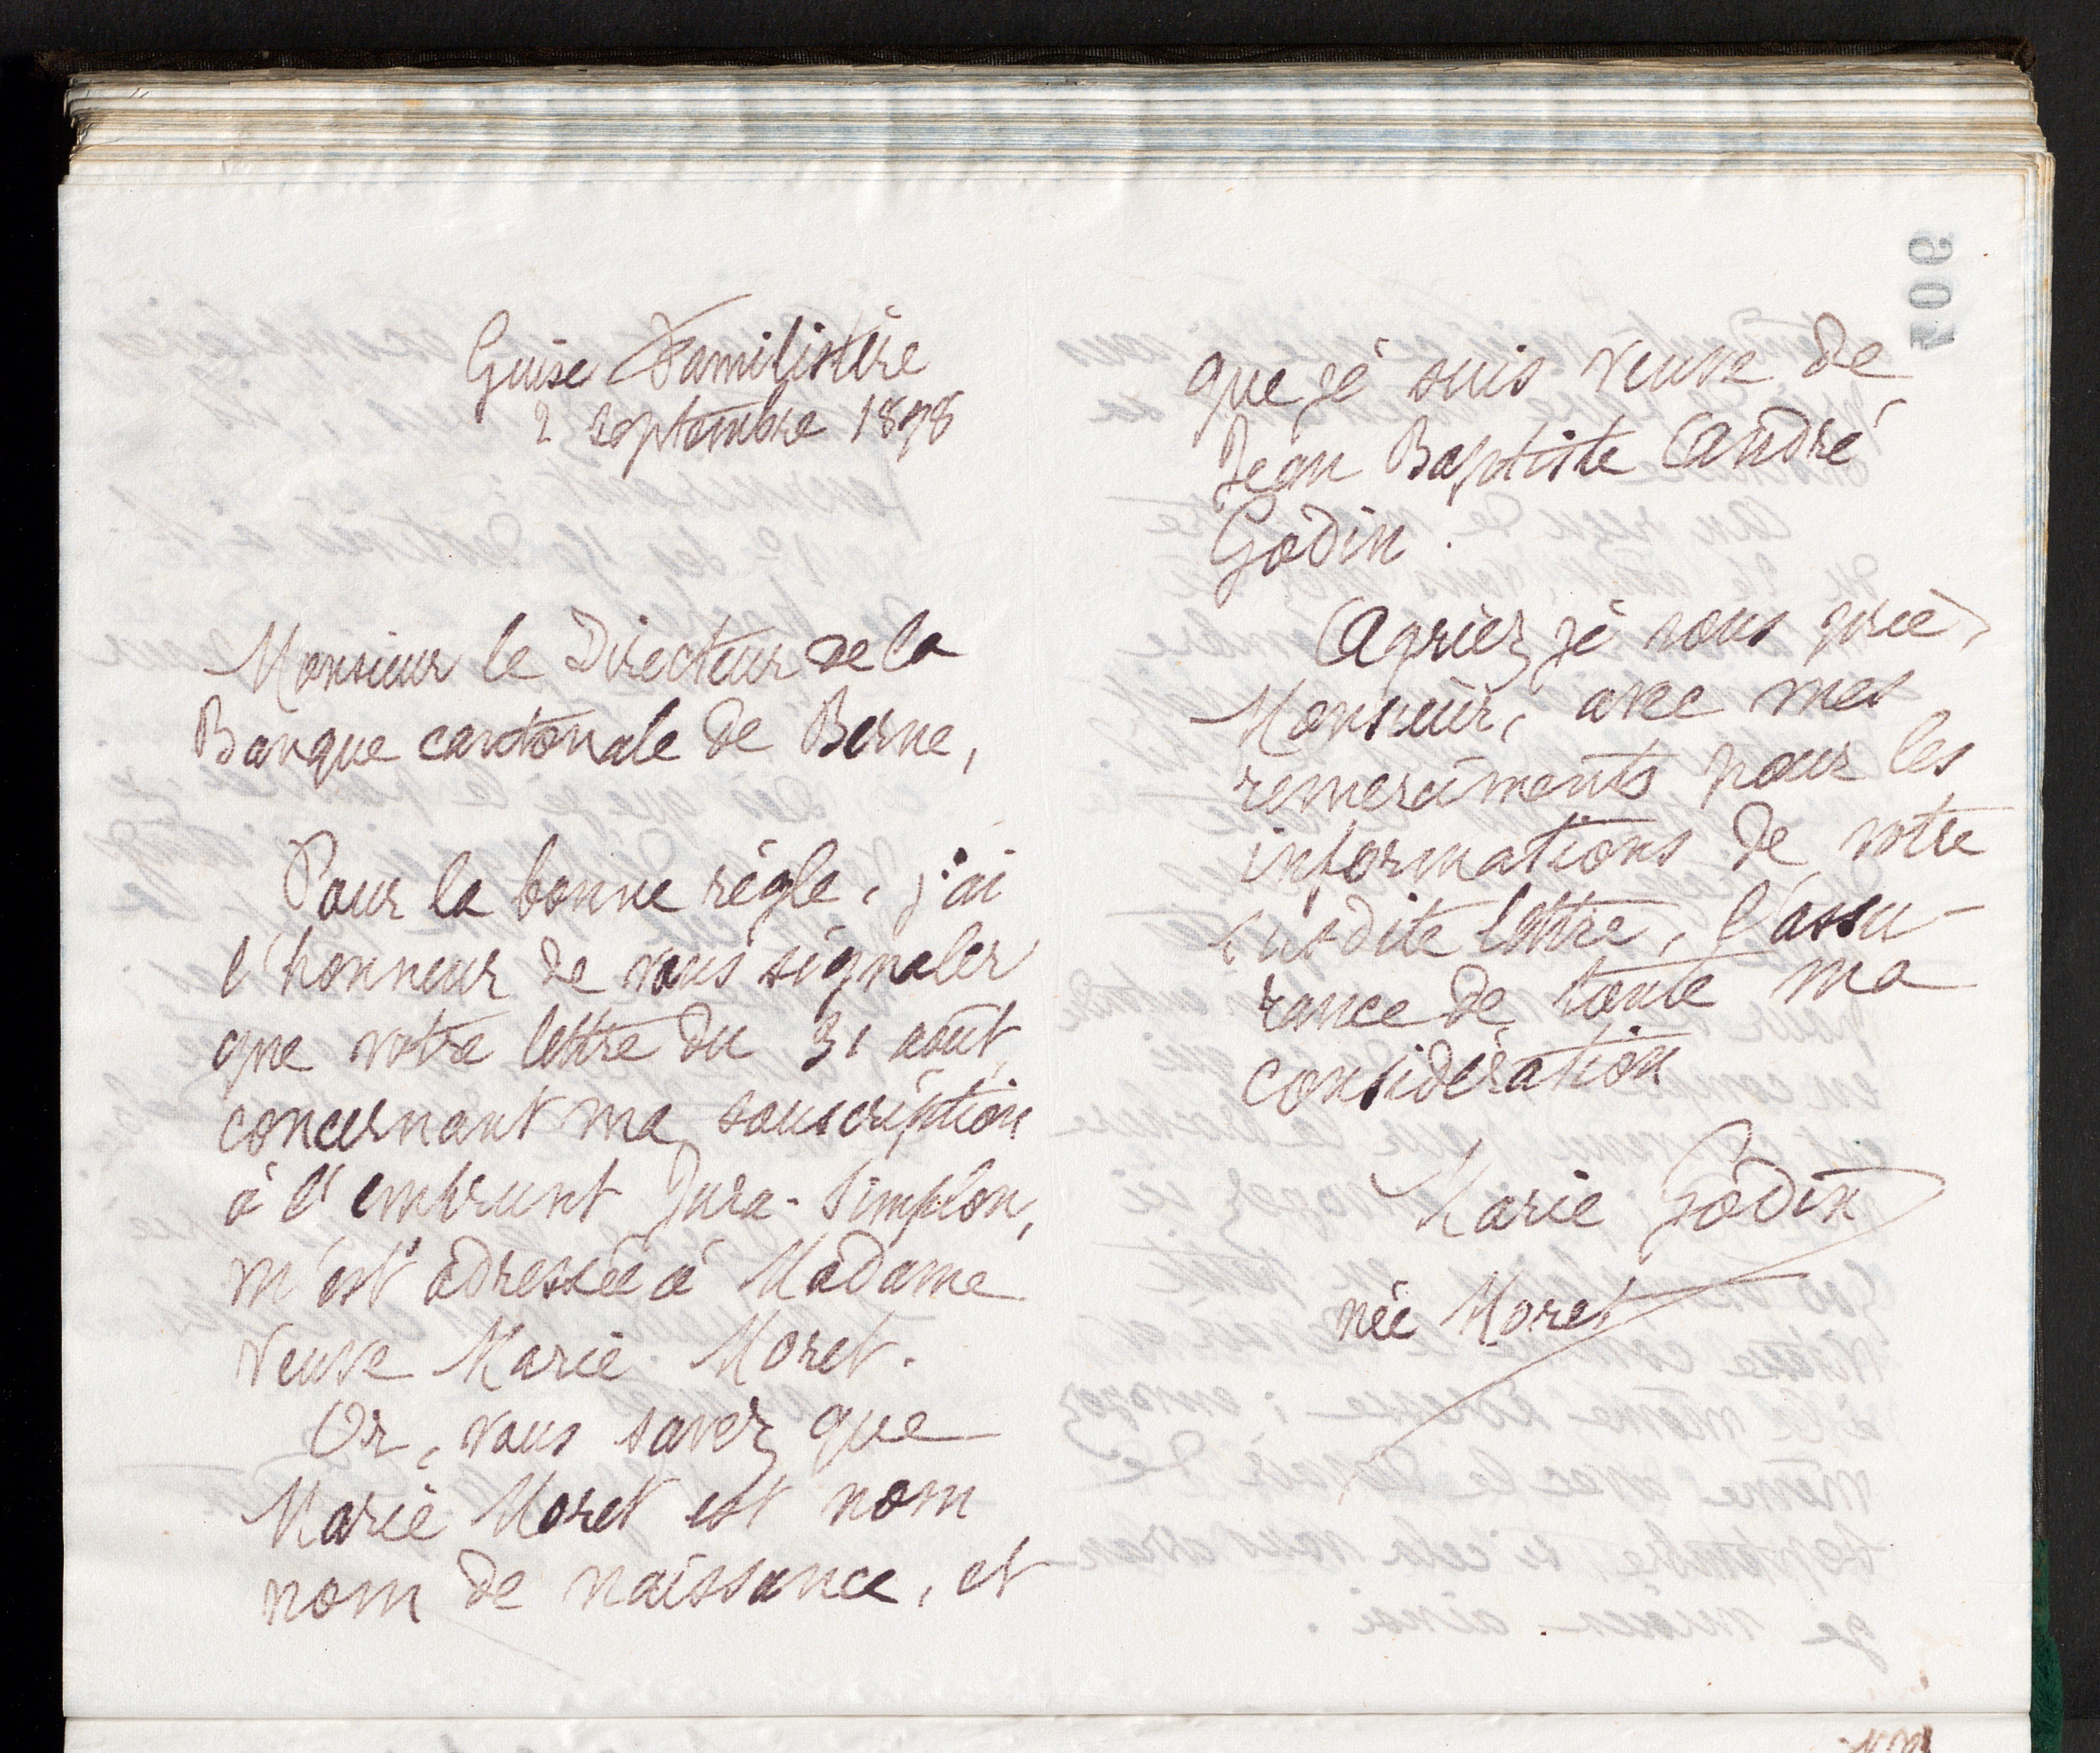 Guise Familistère
2 septembre 1898
Monsieur le Directeur de la
Banque cantonale de Berne,
Pour la bonne règle, j'ai
l'honneur de vous signaler
que votre lettre du 31 août,
concernant ma souscription
à l'emprunt Jura-Simplon,
m'est adressée à Madame
Veuve Marie Moret.
Or, vous savez que
Marie Moret est nom
nom de naissance, et
que je suis veuve de
Jean Baptiste André
Godin.
Agréez, je vous prie,
Monsieur, avec mes
remerciments pour les
informations de votre
susdite lettre, l'assu-
rance de toute ma
considération
Marie Godin
née Moret